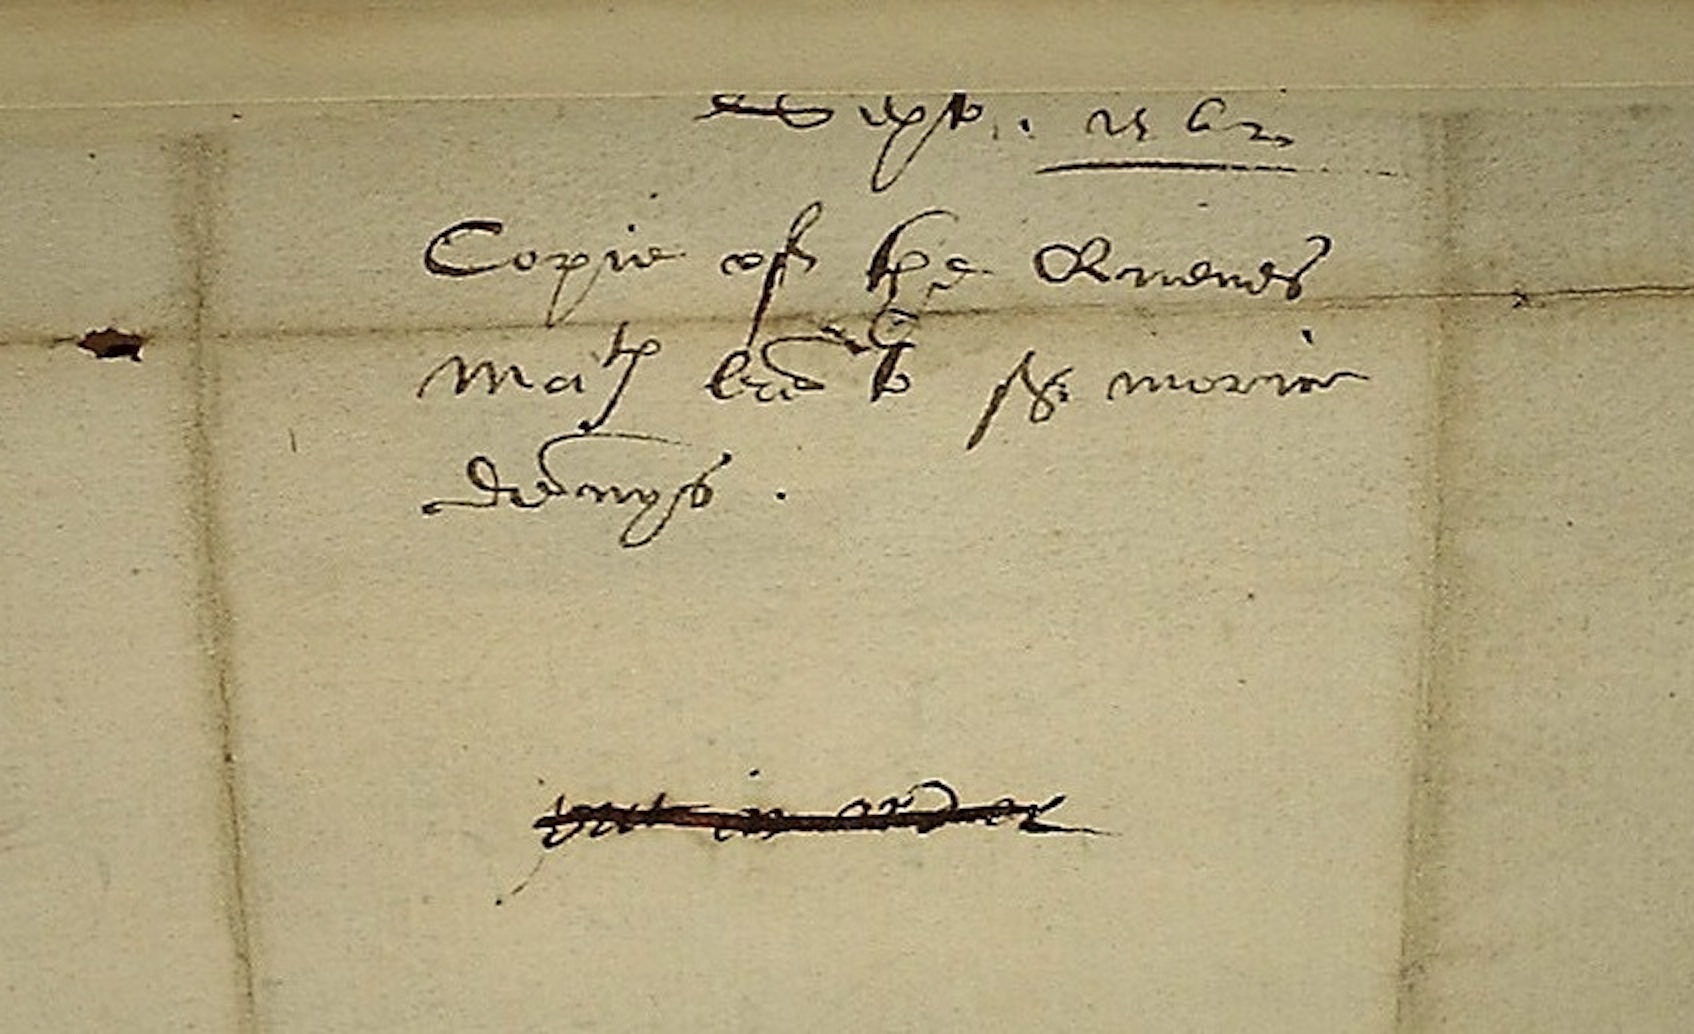 Sept. 1562
Copie of the Quenes
Maty lre to Sr moris
denys.
put in order